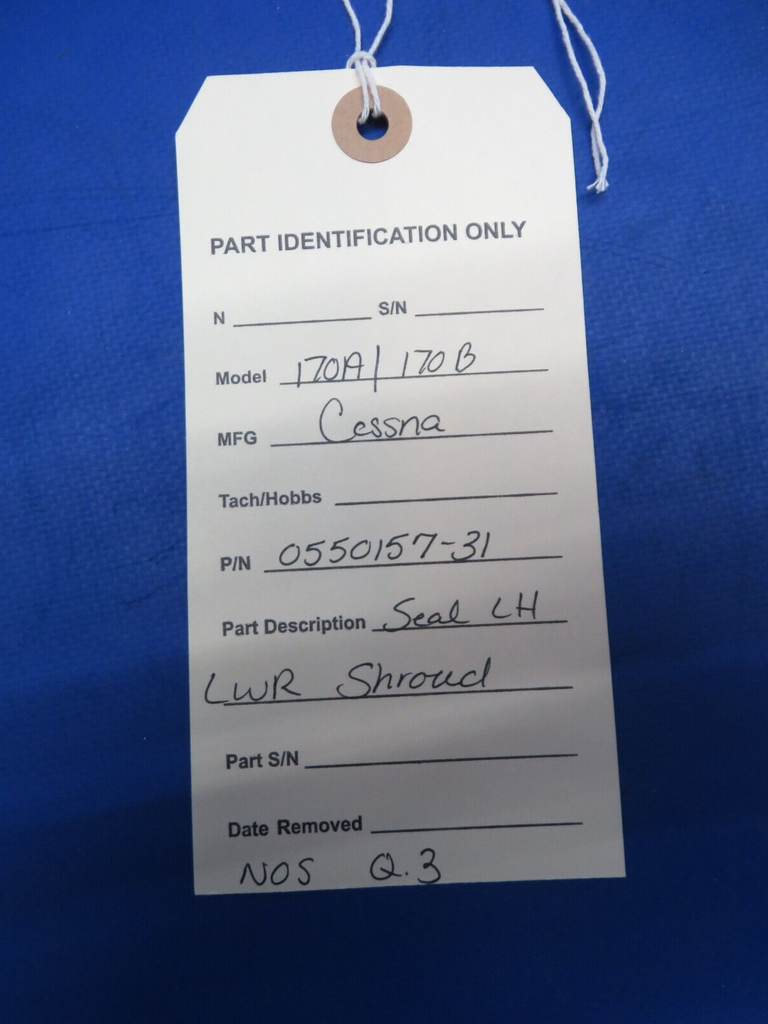 PART IDENTIFICATION ONLY
N S/N
Model 170A/170B
MFG Cessna
Tach/Hobbs
P/N 0550157-31
Part Description Seal LH
LWR Shroud
Part S/N
Date Removed
NOS Q.3